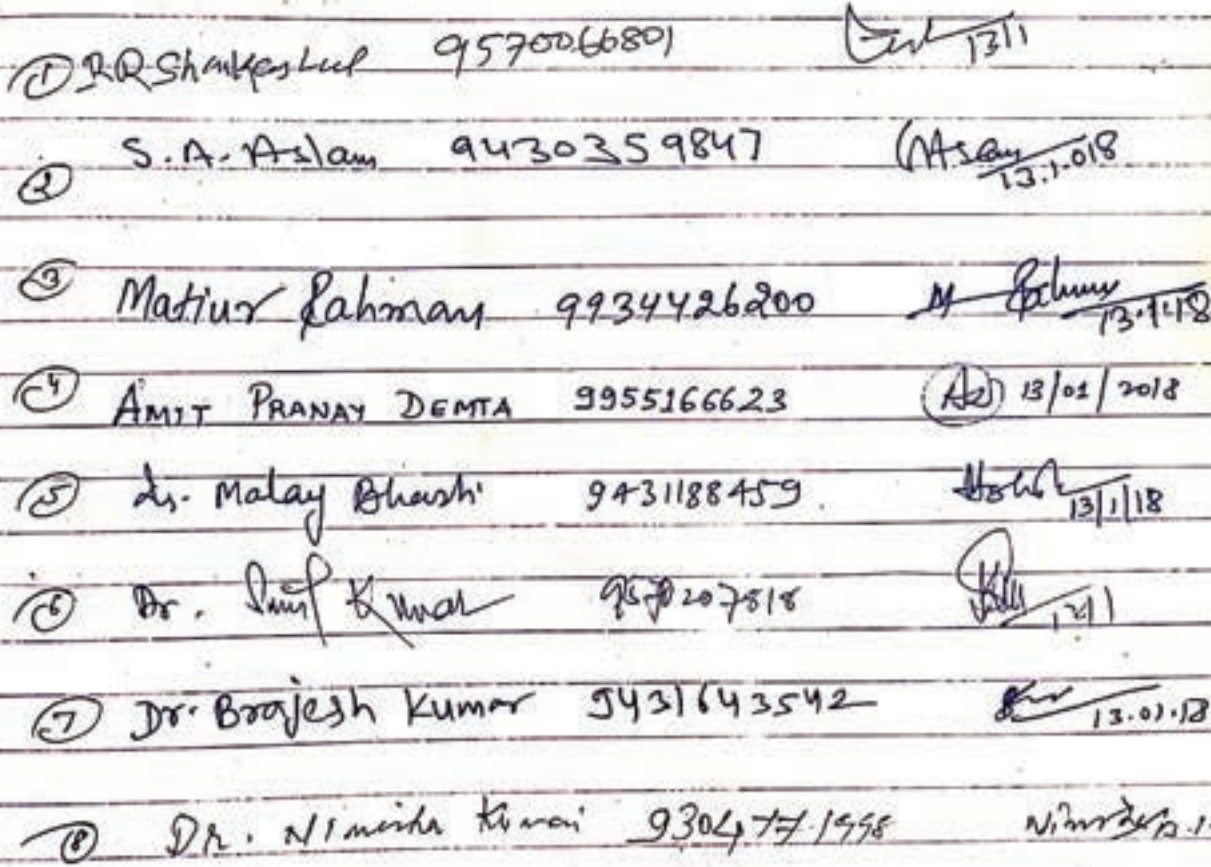 ① 9570066801 13/1
② S.A. Aslam 9430359847 Aslam 13.1.018
③ Matiur Rahman 9934426200 M Rahman 13.1.18
④ AMIT PRANAY DEMTA 9955166623 13/01/2018
⑤ Dr. Malay Bharti 9431188459 13/1/18
⑥ Dr. Kumar 9570207818
⑦ Dr. Brajesh Kumar 9431643542 13.01.18
⑧ DR. Nimisha Kumari